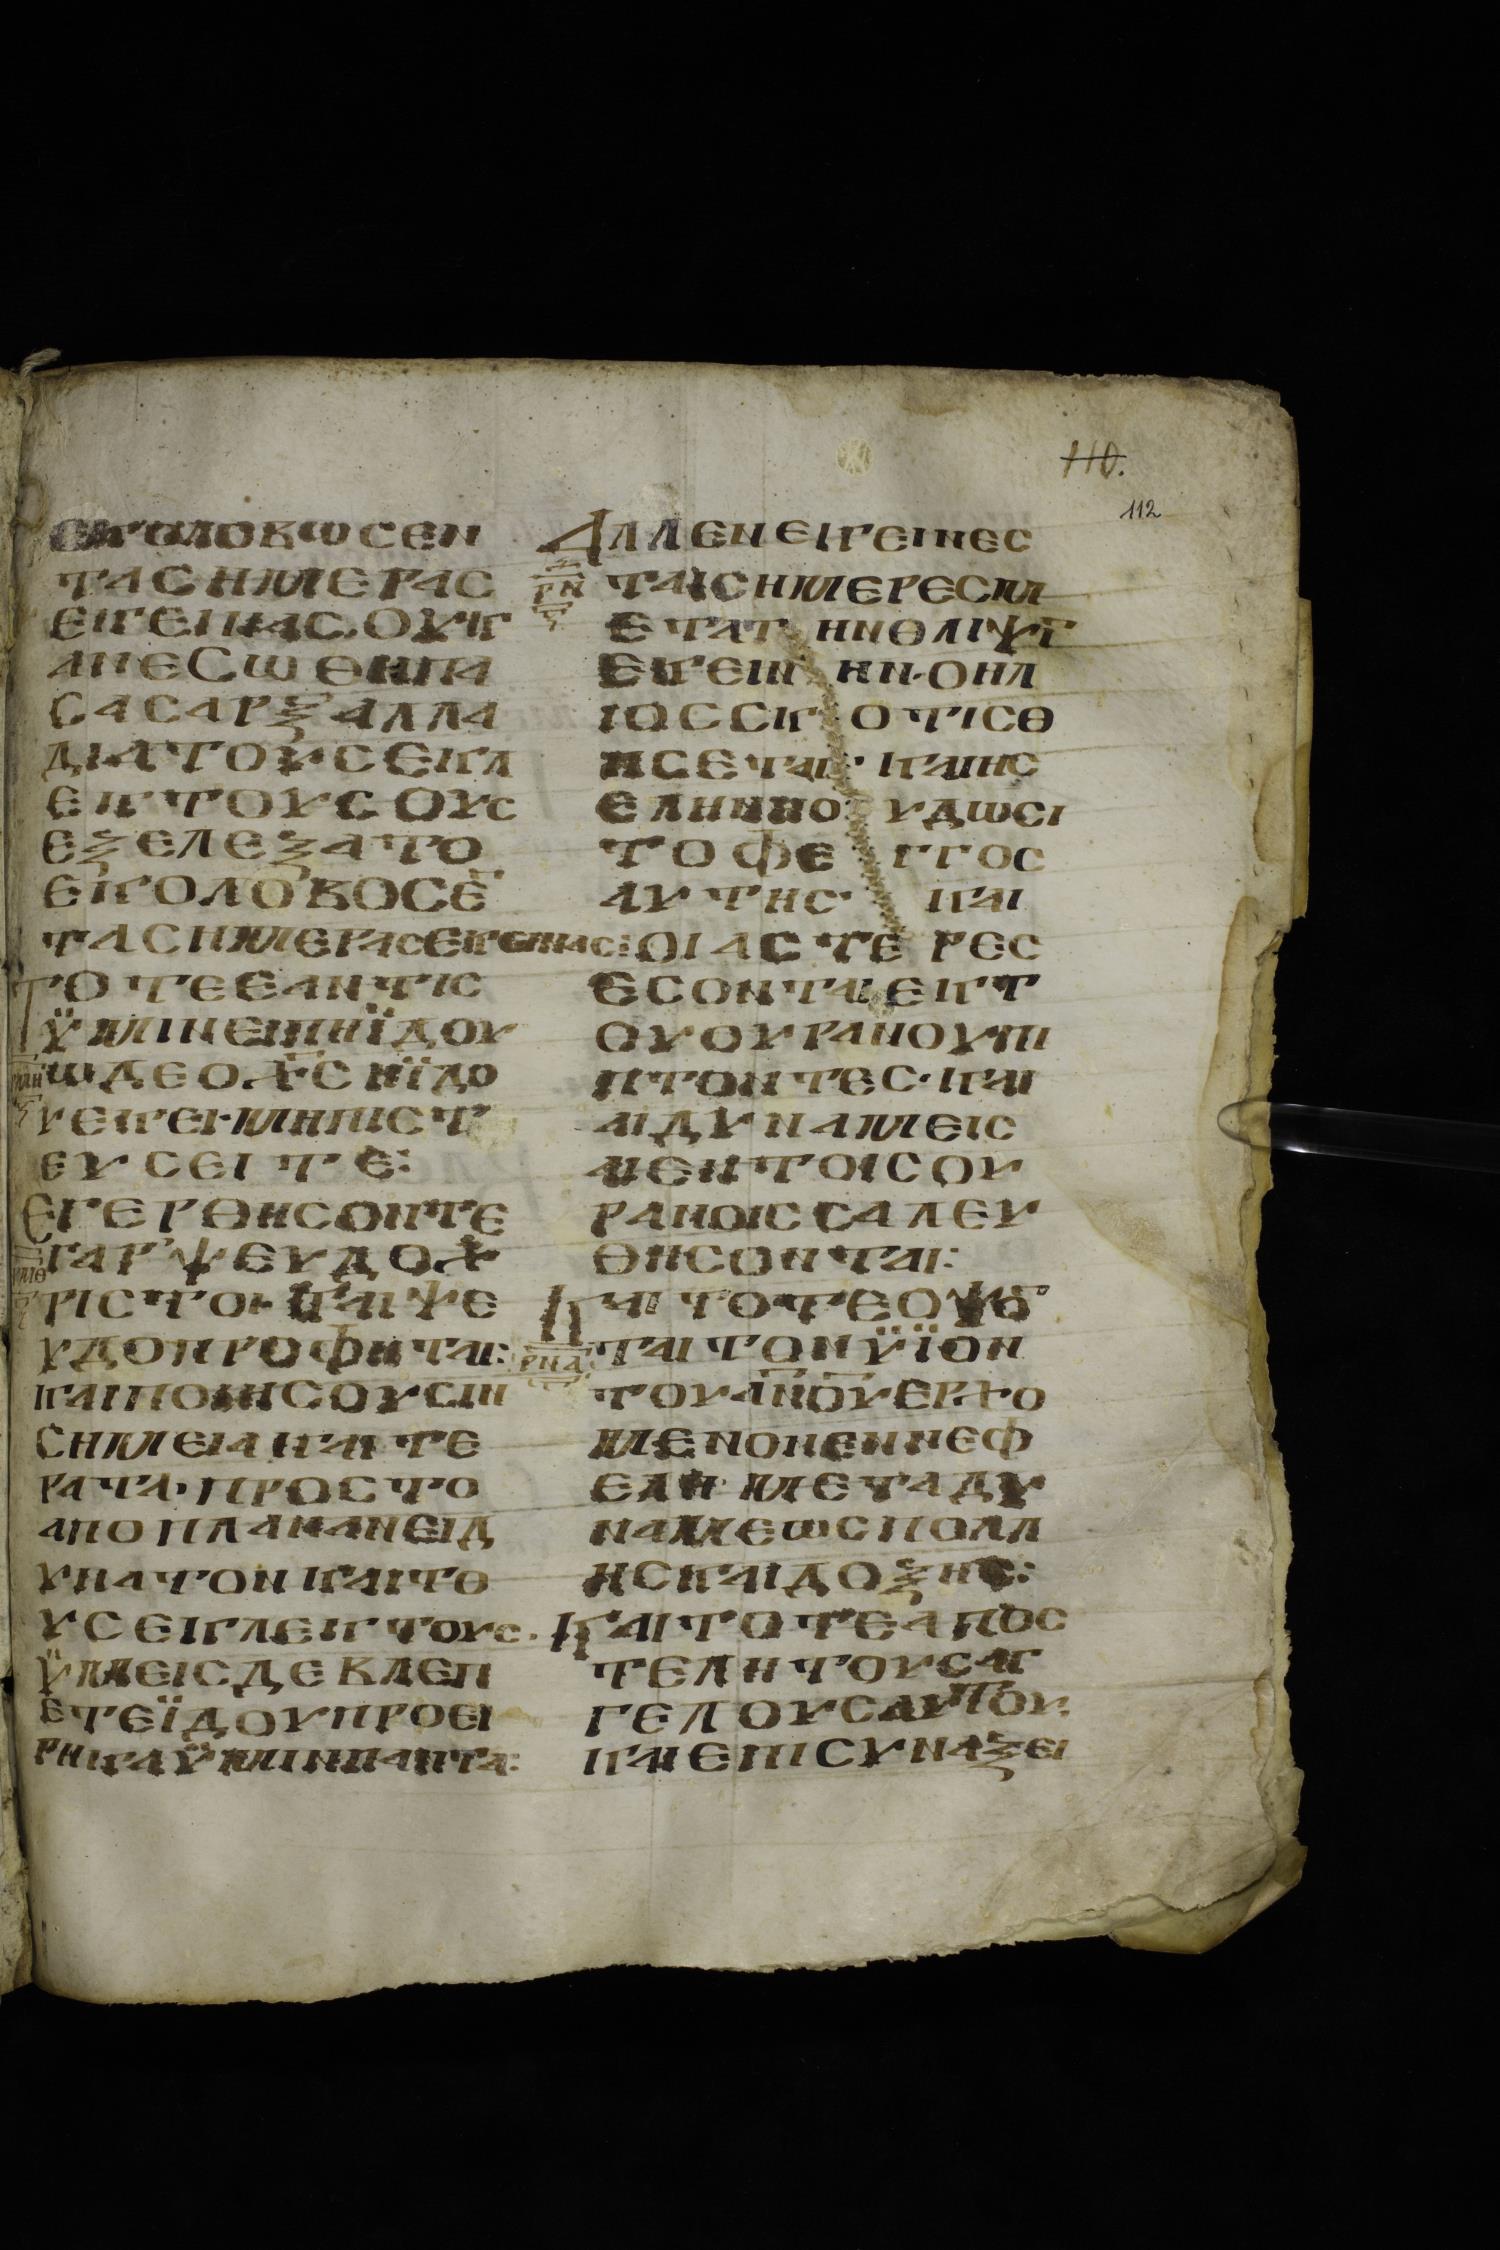 110.
112
ΕΚΟΛΟΒΩСΕΝ
ΤΑСΗΜΕΡΑС
ΕΚΕΙΝΑС·ΟΥΚ
ΑΝΕСΩΘΗΠΑ
СΑСΑΡΞΑΛΛΑ
ΔΙΑΤΟΥСΕΚΛ
ΕΚΤΟΥСΟΥС
ΕΞΕΛΕΞΑΤΟ
ΕΚΟΛΟΒΟСΕ̅
ΤΑСΗΜΕΡΑСΕΚΕΙΝΑС:
ΤΟΤΕΕΑΝΤΙС
ΫΜΙΝΕΙΠΗΪΔΟΥ
ΩΔΕΟΧ̅СΗΪΔΟ
ΥΕΚΕΙ·ΜΗΠΙСΤ
ΕΥСΕΙΤΕ:
ΕΓΕΡΘΗСΟΝΤΕ
ΓΑΡΨΕΥΔΟΧ
ΡΙСΤΟΙ·ΚΑΙΨΕ
ΥΔΟΠΡΟΦΗΤΑΙ:
ΚΑΙΠΟΙΗСΟΥСΙΝ
СΗΜΕΙΑΚΑΙΤΕ
ΡΑΤΑ·ΠΡΟСΤΟ
ΑΠΟΠΛΑΝΑΝΕΙΔ
ΥΝΑΤΟΝΚΑΙΤΟ
ΥСΕΚΛΕΚΤΟΥС·
ΫΜΕΙСΔΕΒΛΕΠ
ΕΤΕΪΔΟΥΠΡΟΕΙ
ΡΗΚΑΫΜΙΝΠΑΝΤΑ:
ΑΛΛΕΝΕΚΕΙΝΕС
ΡΝ ΤΑΙСΗΜΕΡΕСΜ
ΕΤΑΤΗΝΘΛΙΨΓ
ΕΚΕΙΝΗΝ·ΟΗΛ
ΙΟССΚΟΤΙСΘ
ΗСΕΤΑΙ·ΚΑΙΗС
ΕΛΗΝΗΟΥΔΩСΙ
ΤΟΦΕΓΓΟС
ΑΥΤΗС·ΚΑΙ
ΟΙΑСΤΕΡΕС
ΕСΟΝΤΑΙΕΚΤ
ΟΥΟΥΡΑΝΟΥΠΙ
ΠΤΟΝΤΕС·ΚΑΙ
ΑΙΔΥΝΑΜΕΙС
ΑΙΕΝΤΟΙСΟΥ
ΡΑΝΟΙССΑΛΕΥ
ΘΗСΟΝΤΑΙ:
ΚΑΙΤΟΤΕΟΨΟ
ΡΝΑ ΤΑΙΤΟΝΫΪΟΝ
ΤΟΥΑ̅Ν̅Ο̅Υ̅ΕΡΧΟ
ΜΕΝΟΝΕΝΝΕΦ
ΕΛΗ·ΜΕΤΑΔΥ
ΝΑΜΕΩСΠΟΛΛ
ΗСΚΑΙΔΟΞΗС:
ΚΑΙΤΟΤΕΑΠΟС
ΤΕΛΗΤΟΥСΑΓ
ΓΕΛΟΥСΑΥΤΟΥ·
ΚΑΙΕΠΙСΥΝΑΞΕΙ